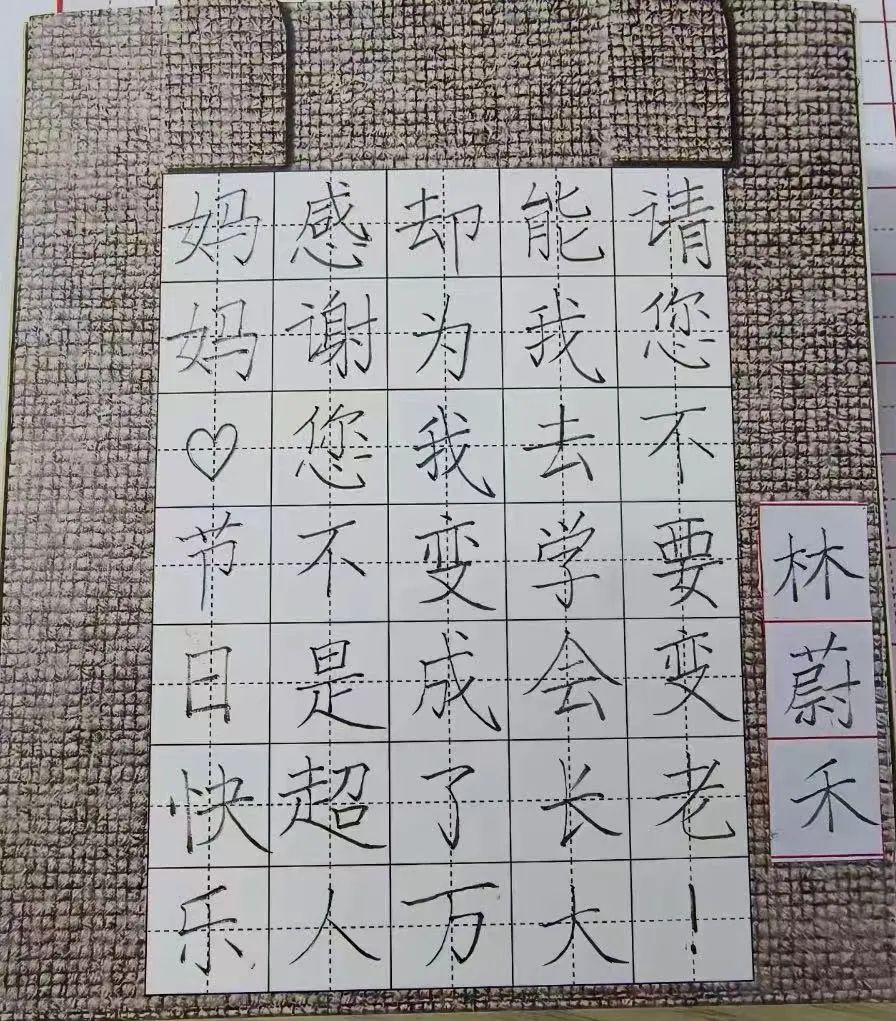 妈妈♡节日快乐
感谢您不是超人
却为我变成了万
能我去学会长大
请您不要变老！
林蔚禾